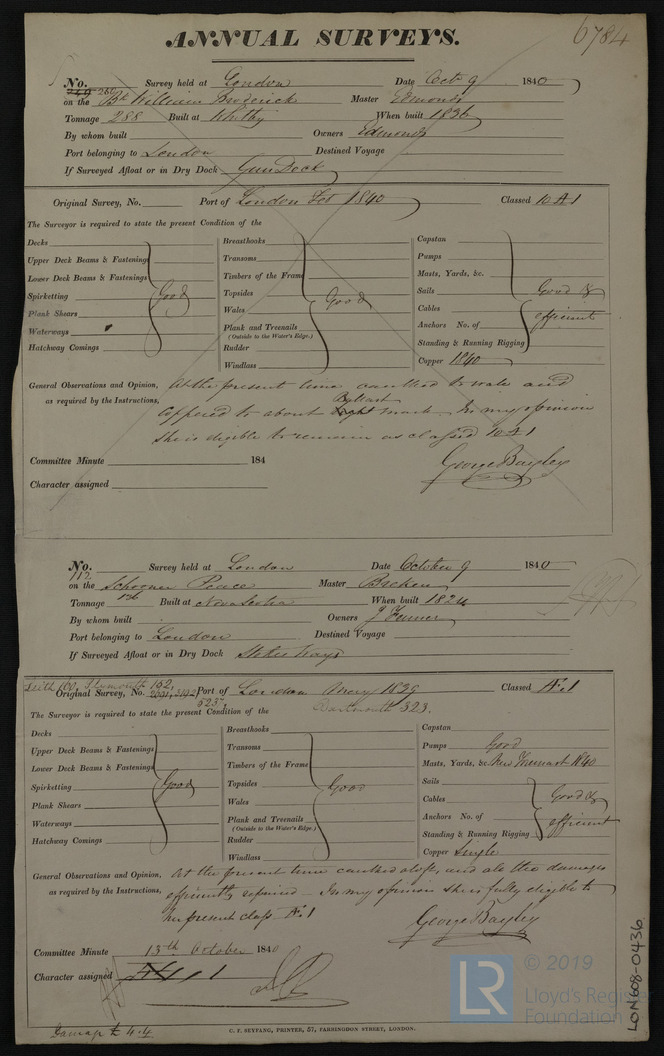 6784
ANNUAL SURVEYS.
No. 260 Survey held at London Date Octr 9 1840
on the Bk William Broderick Master Edmonds
Tonnage 288 Built at Whitby When built 1836
By whom built Owners Edmonds
Port belonging to London Destined Voyage
If Surveyed Afloat or in Dry Dock Gun Dock
Original Survey, No. Port of London Feb 1840 Classed 10 A1
The Surveyor is required to state the present Condition of the
Decks
Upper Deck Beams & Fastenings
Lower Deck Beams & Fastenings
Spirketting Good
Plank Shears
Waterways
Hatchway Comings
Breasthooks
Transoms
Timbers of the Frame
Topsides Good
Wales
Plank and Treenails
(Outside to the Water's Edge.)
Rudder
Windlass
Capstan
Pumps
Masts, Yards, &c.
Sails Good &
Cables efficient
Anchors No. of
Standing & Running Rigging
Copper 1840
General Observations and Opinion, At the present time caulked to wale and
as required by the Instructions, coppered to about Ballast mark. In my opinion
she is eligible to remain as classed 10 A1
Committee Minute 184 George Bayley
Character assigned
No. 112 Survey held at London Date October 9 1840
on the Schooner Peace Master Bricken
Tonnage 136 Built at Nova Scotia When built 1824
By whom built Owners J Fenner
Port belonging to London Destined Voyage
If Surveyed Afloat or in Dry Dock
Leith 100. Plymouth 152.
Original Survey, No. 5237 Port of London May 1839 Classed Æ1
The Surveyor is required to state the present Condition of the Dartmouth 323.
Decks
Upper Deck Beams & Fastenings
Lower Deck Beams & Fastenings
Spirketting Good
Plank Shears
Waterways
Hatchway Comings
Breasthooks
Transoms
Timbers of the Frame
Topsides Good
Wales
Plank and Treenails
(Outside to the Water's Edge.)
Rudder
Windlass
Capstan
Pumps Good
Masts, Yards, &c New Foremast 1840
Sails
Cables Good &
Anchors No. of efficient
Standing & Running Rigging
Copper Single
General Observations and Opinion, At the present time caulked alofts, and all the damages
as required by the Instructions, efficiently repaired – In my opinion she is fully eligible to
her present class Æ1
George Bayley
Committee Minute 13th October 1840
Character assigned Æ 1
Damage £ 4.4
C. F. SEYFANG, PRINTER, 57, FARRINGDON STREET, LONDON.
LON608-0436
LR © 2019
Lloyd's Register
Foundation